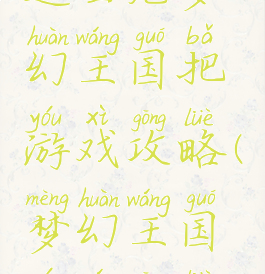 huàn wáng guó bǎ
幻王国把
yóu xì gōng lüè
游戏攻略(
mèng huàn wáng guó
梦幻王国